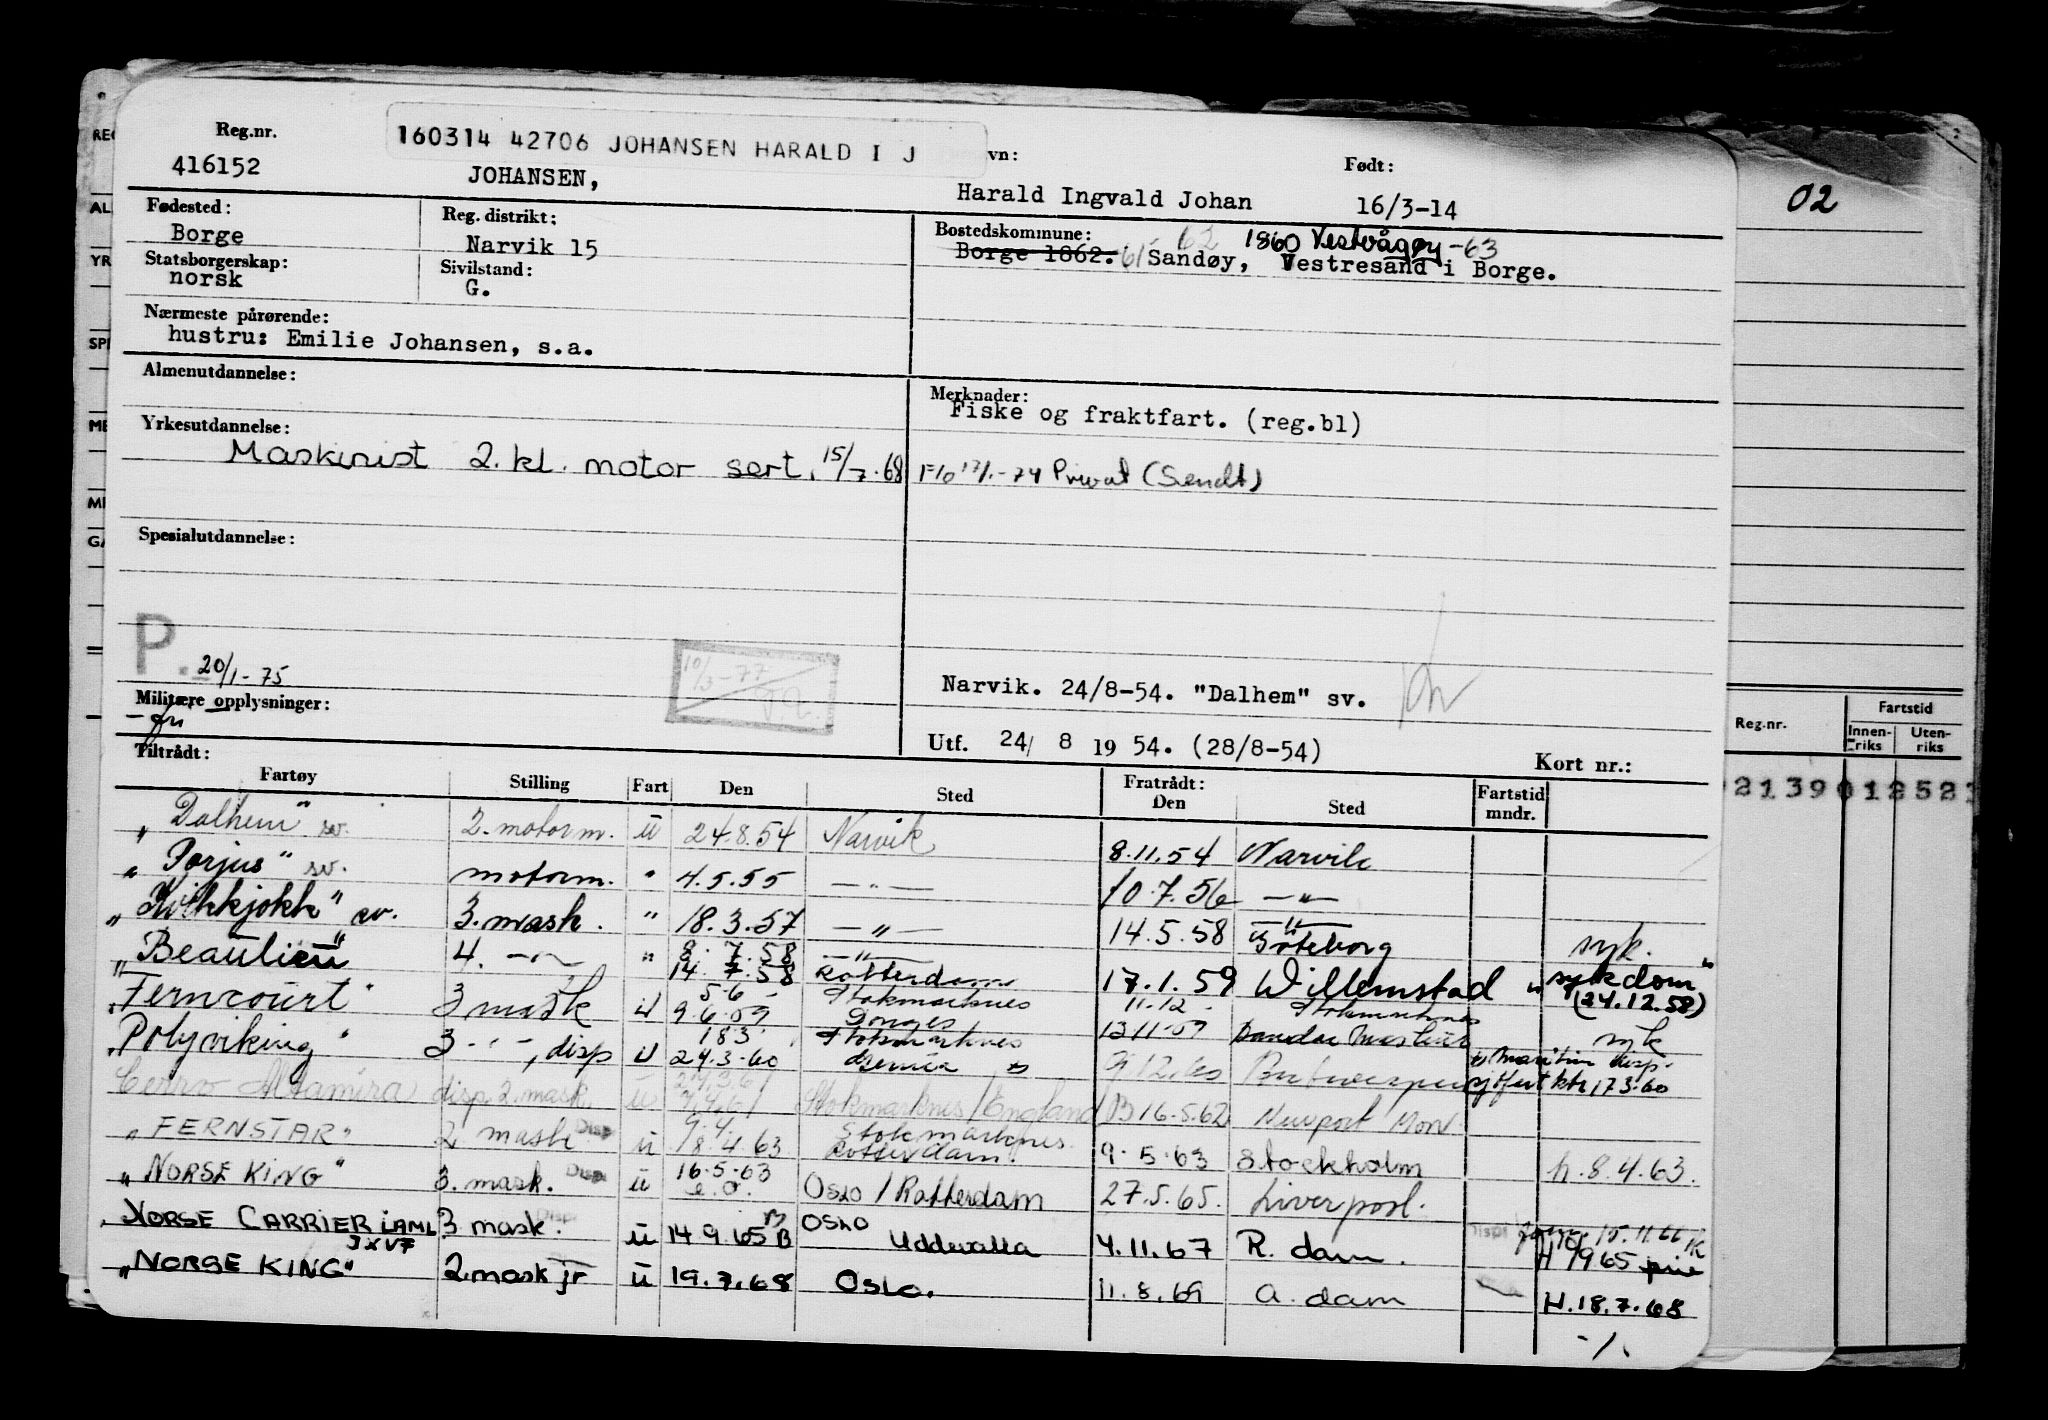 Reg.nr.
160314 42706 JOHANSEN HARALD I J
vn:
Født:
416152
JOHANSEN,
Harald Ingvald Johan
16/3-14
02
Fødested:
Borge
Reg. distrikt:
Narvik 15
Bostedskommune:
62 1860 Vestvågøy -63
Borge 1862. 61 Sandøy, Vestresand i Borge.
Statsborgerskap:
norsk
Sivilstand:
G.
Nærmeste pårørende:
hustru: Emilie Johansen, s.a.
Almenutdannelse:
Merknader:
Fiske og fraktfart. (reg.bl)
Yrkesutdannelse:
Maskinist 2. kl. motor sert. 15/7.68
17/1-74 Privat (Sendt)
Spesialutdannelse:
P.
20/1-75
10/3-77
Militære opplysninger:
- fri
Narvik. 24/8-54. "Dalhem" sv.
Utf. 24/ 8 19 54. (28/8-54)
Kort nr.:
Reg.nr.
Fartstid
Innen-riks
Uten-riks
Tiltrådt:
Fartøy
Stilling
Fart
Den
Sted
Fratrådt:
Den
Sted
Fartstid mndr.
21390 12 52
"Dalhem" sv. 2. motorm. u 24.8.54 Narvik 8.11.54 Narvik
"Porjus" sv. motorm. " 4.5.55 —"— 10.7.56 —"—
"Kvikkjokk" sv. 3. mask. " 18.3.57 —"— 14.5.58 —"— Göteborg syk.
"Beaulieu" 4. —"— " 8.7.58 —"— 14.7.58 Rotterdam 17.1.59 Willemstad "sykdom" (24.12.58)
"Ferncourt" 3 mask u 5.6 - Stokmarknes 9.6.59 Donges 11.12 - Stokmarknes 13.11.59 syk
"Polyviking" 3 - " -, disp u 18.3. Stokmarknes 24.3.60 9.12.60 17.3.60
Cerro Altamira disp 2. mask. u Stokmarknes / England 16.5.62 Newport Mon.
"FERNSTAR" 2. mask Disp u 9.4. Stokmarknes 18.4.63 Rotterdam. 9.5.63 Stockholm h. 8.4.63.
"NORSE KING" 3. mask. Disp u 16.5.63 Oslo / Rotterdam 27.5.65. Liverpool.
NORSE CARRIER LAML JXVF 3 mask. Disp u 14.9.65 B Oslo Uddevalla 4.11.67 R. dam. Disp 15.11.66
"NORSE KING" 2mask jr u 19.7.68 Oslo. 11.8.69 A. dam H. 18.7.68
-/.